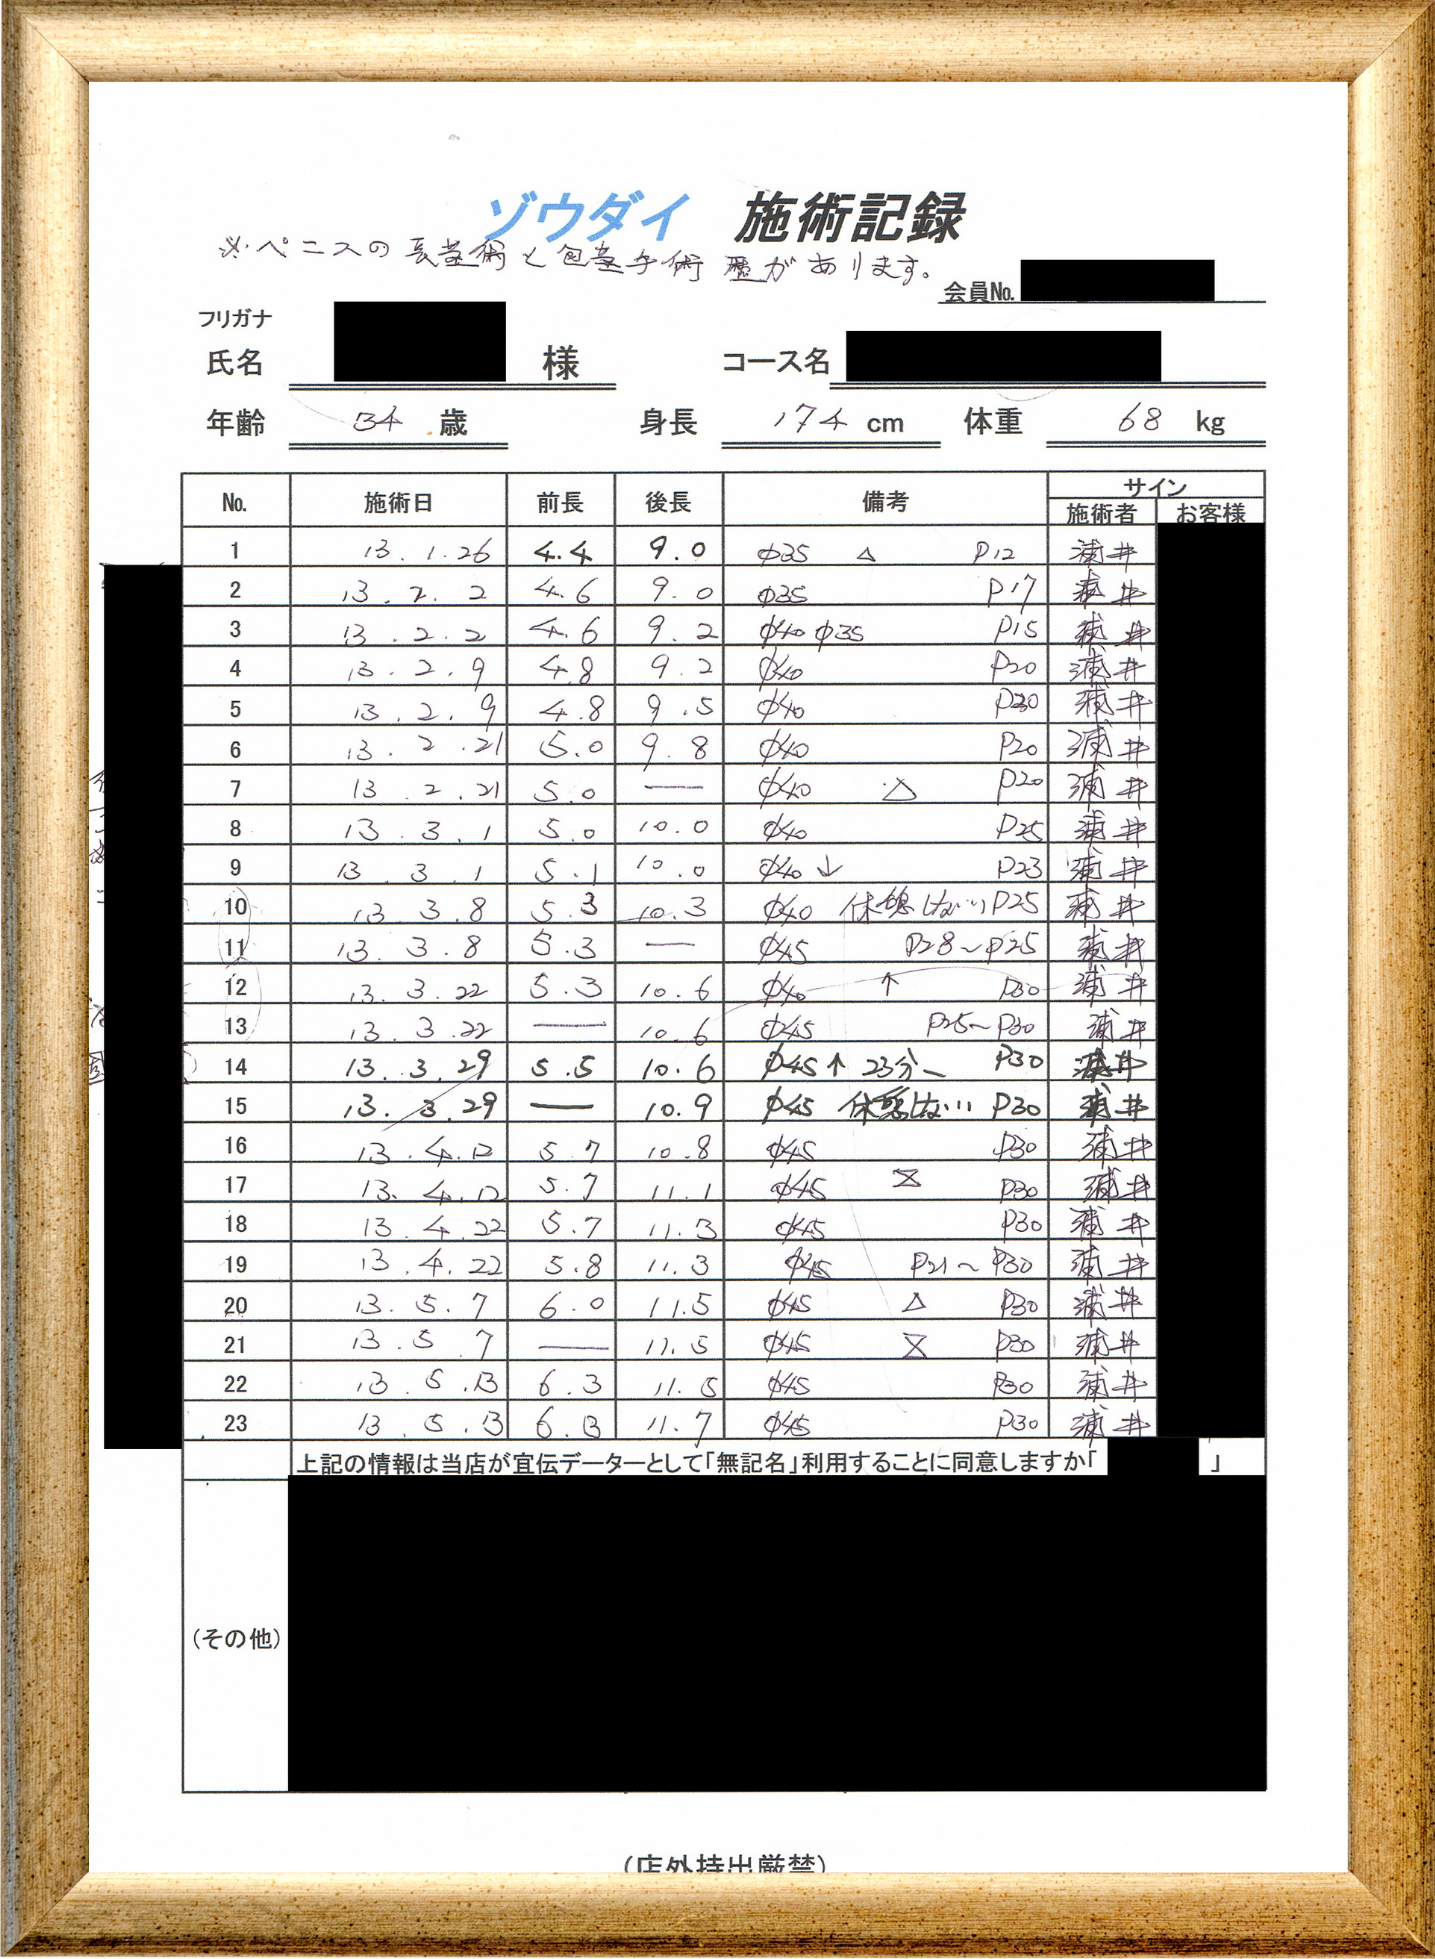 ゾウダイ 施術記録
※ペニスの長茎術と包茎手術歴があります。
会員No.
フリガナ
氏名 様 コース名
年齢 34 歳 身長 174 cm 体重 68 kg
No. 施術日 前長 後長 備考 サイン
施術者 お客様
1 13.1.26 4.4 9.0 φ35 △ P12 浦井
2 13.2.2 4.6 9.0 φ35 P17 浦井
3 13.2.2 4.6 9.2 φ40 φ35 P15 浦井
4 13.2.9 4.8 9.2 φ40 P20 浦井
5 13.2.9 4.8 9.5 φ40 P20 浦井
6 13.2.21 5.0 9.8 φ40 P20 浦井
7 13.2.21 5.0 — φ40 △ P20 浦井
8 13.3.1 5.0 10.0 φ40 P25 浦井
9 13.3.1 5.1 10.0 φ40↓ P23 浦井
10 13.3.8 5.3 10.3 φ40 休憩はない P25 浦井
11 13.3.8 5.3 — φ45 P28〜P25 浦井
12 13.3.22 5.3 10.6 φ40 ↑ P30 浦井
13 13.3.22 — 10.6 φ45 P25〜P30 浦井
14 13.3.29 5.5 10.6 φ45↑ 23分〜 P30 浦井
15 13.3.29 — 10.9 φ45 休憩はない P30 浦井
16 13.4.12 5.7 10.8 φ45 P30 浦井
17 13.4.12 5.7 11.1 φ45 P30 浦井
18 13.4.22 5.7 11.3 φ45 P30 浦井
19 13.4.22 5.8 11.3 φ45 P21〜P30 浦井
20 13.5.7 6.0 11.5 φ45 △ P30 浦井
21 13.5.7 — 11.5 φ45 P30 浦井
22 13.5.13 6.3 11.5 φ45 P30 浦井
23 13.5.13 6.3 11.7 φ45 P30 浦井
上記の情報は当店が宣伝データーとして「無記名」利用することに同意しますか「 」
(その他)
(店外持出厳禁)